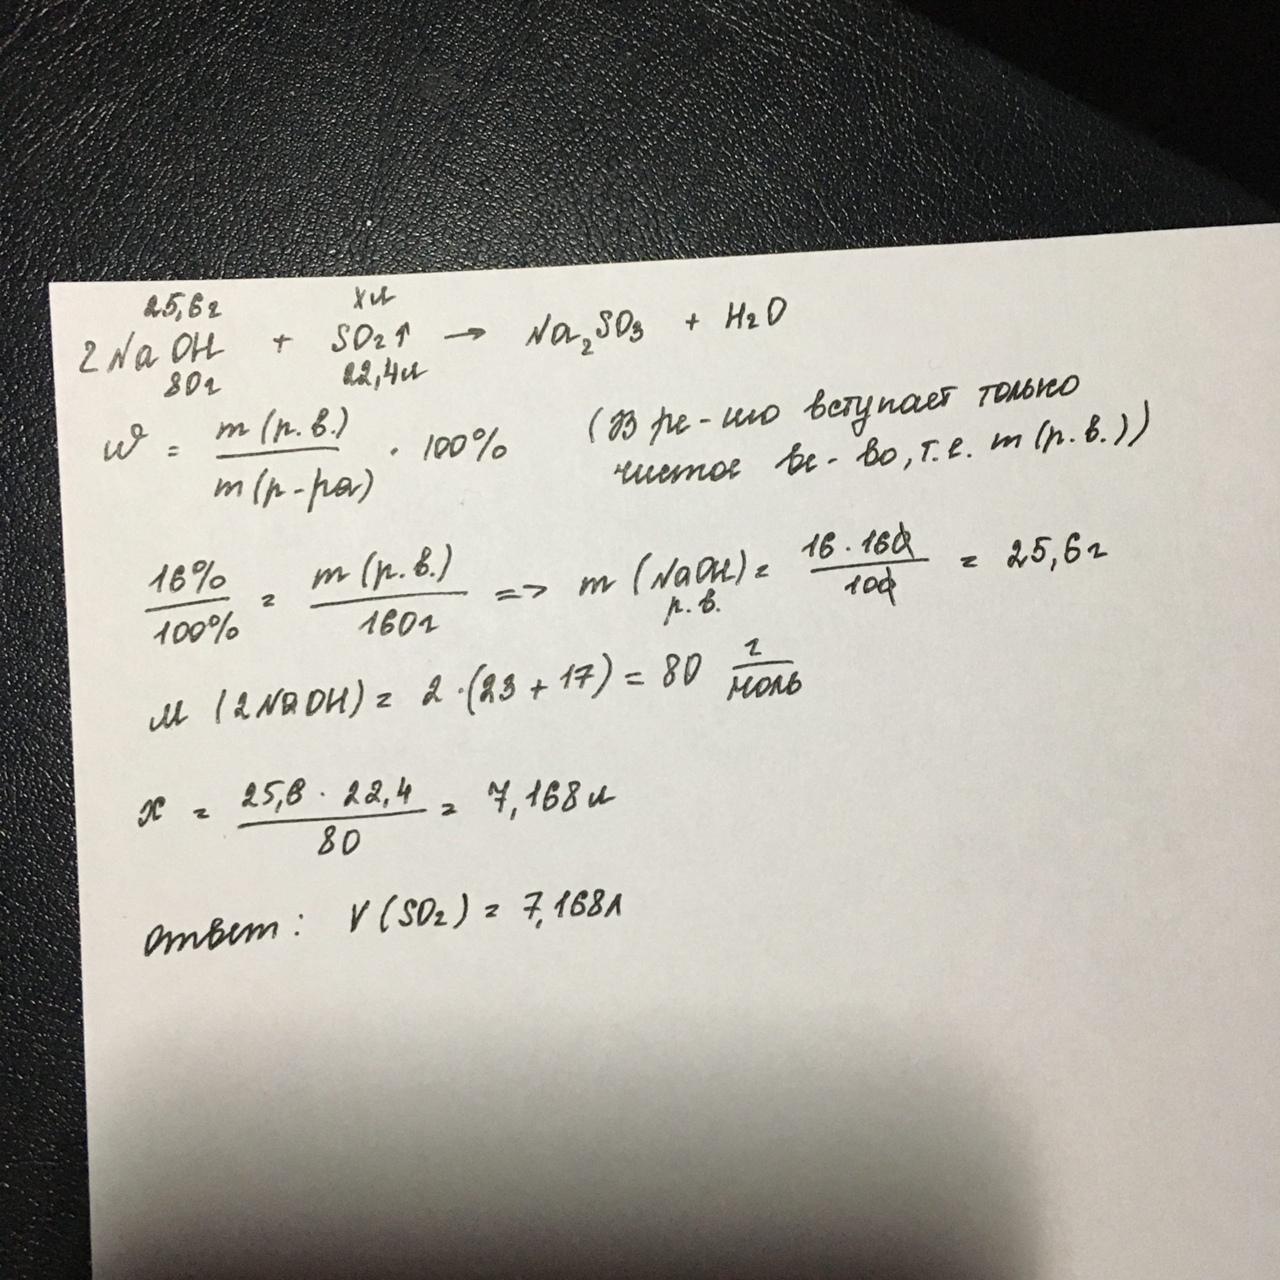 25,6г xл
2NaOH + SO2↑ → Na2SO3 + H2O
80г 22,4л
ω = m(р.в.) / m(р-ра) · 100% (В ре-ию вступает только
чистое ве-во, т.е. m(р.в.))
16% / 100% = m(р.в.) / 160г => m(NaOH) = 16·160 / 100 = 25,6г
р.в.
M(2NaOH) = 2·(23+17) = 80 г / моль
x = 25,6·22,4 / 80 = 7,168л
Ответ: V(SO2) = 7,168л